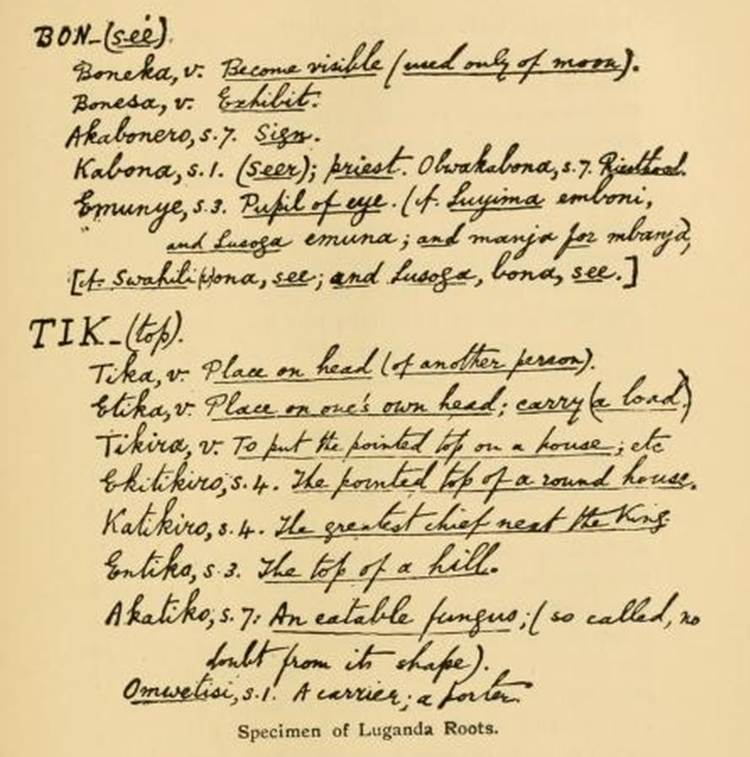 BON-(see).
Boneka, v. Become visible (used only of moon).
Bonesa, v. Exhibit.
Akabonero, s.7. Sign.
Kabona, s.1. (Seer); priest. Obwakabona, s.7. Priesthood.
Emunye, s.3. Pupil of eye. (cf. Luyima emboni,
and Lusoga emuna; and manja for mbanja,
[cf. Swahili ona, see; and Lusoga, bona, see.]
TIK-(top).
Tika, v. Place on head (of another person).
Etika, v. Place on one's own head; carry (a load)
Tikira, v. To put the pointed top on a house; etc
Ekitikiro, s.4. The pointed top of a round house.
Katikiro, s.4. The greatest chief next the King.
Entiko, s.3. The top of a hill.
Akatiko, s.7: An eatable fungus; (so called, no
doubt from its shape).
Omwetisi, s.1. A carrier; a porter.
Specimen of Luganda Roots.